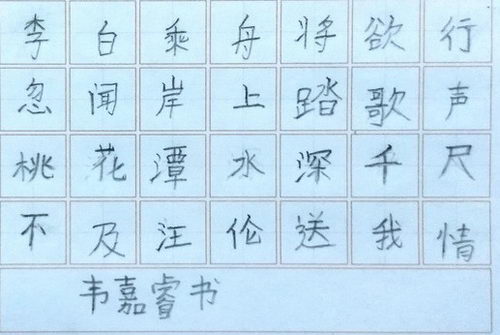 李白乘舟将欲行
忽闻岸上踏歌声
桃花潭水深千尺
不及汪伦送我情
韦嘉睿书